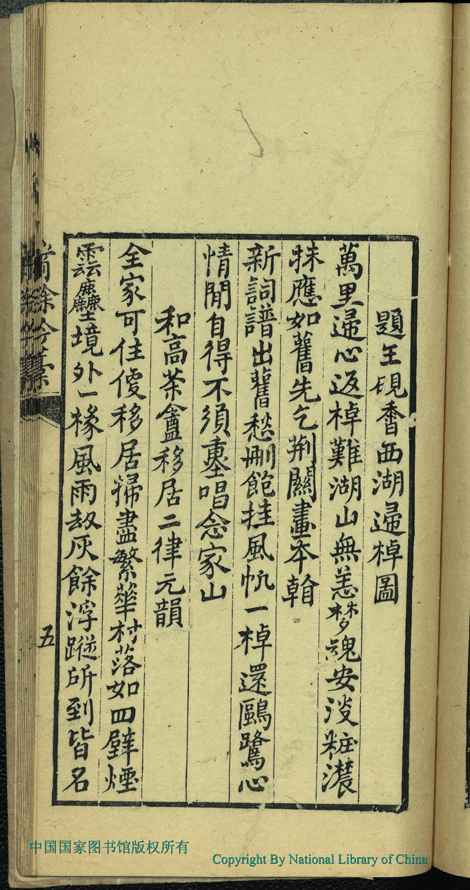 題王硯香西湖歸棹圖
萬里歸心返棹難湖山無恙梦魂安淡粧濃
抹應如舊先乞荆關畫本翰
新詞譜出舊愁刪飽挂風帆一棹還鷗鷺心
情閒自得不須重唱念家山
和高茶盦移居二律元韻
全家可住移居掃盡繁華村落如四壁煙
雲塵境外一椽風雨劫灰餘浮蹤所到皆名
餘吟藁
五
中国国家图书馆版权所有
Copyright By National Library of China